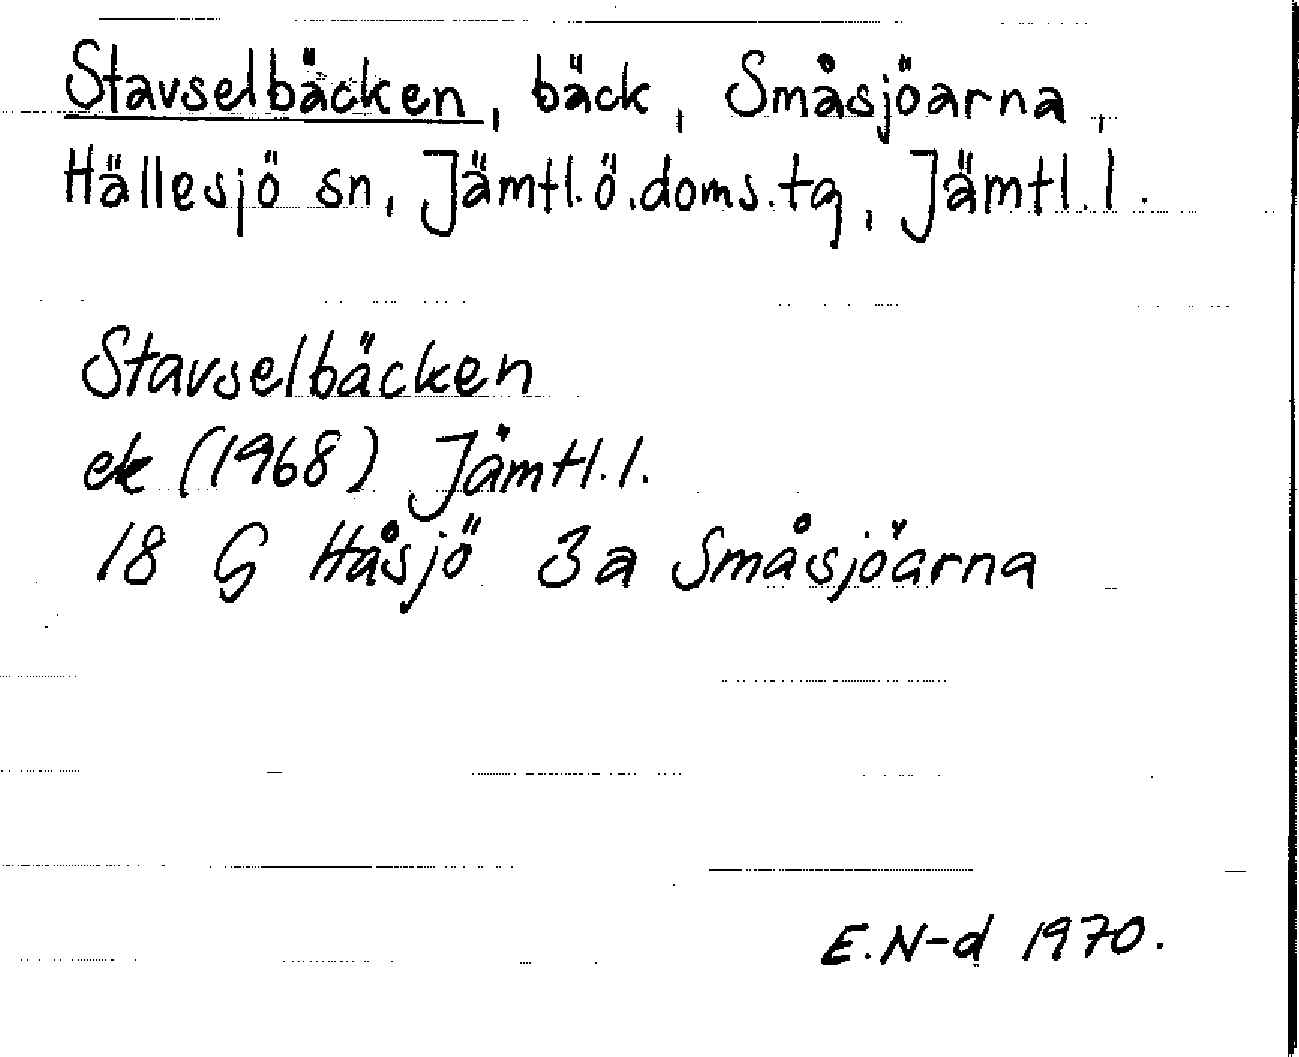 Stavselbäcken, bäck, Småsjöarna,
Hällesjö sn, Jämtl.ö.doms.tg, Jämtl.l.
Stavselbäcken
ek (1968) Jämtl.l.
18 G Håsjö 3a Småsjöarna
E.N-d 1970.